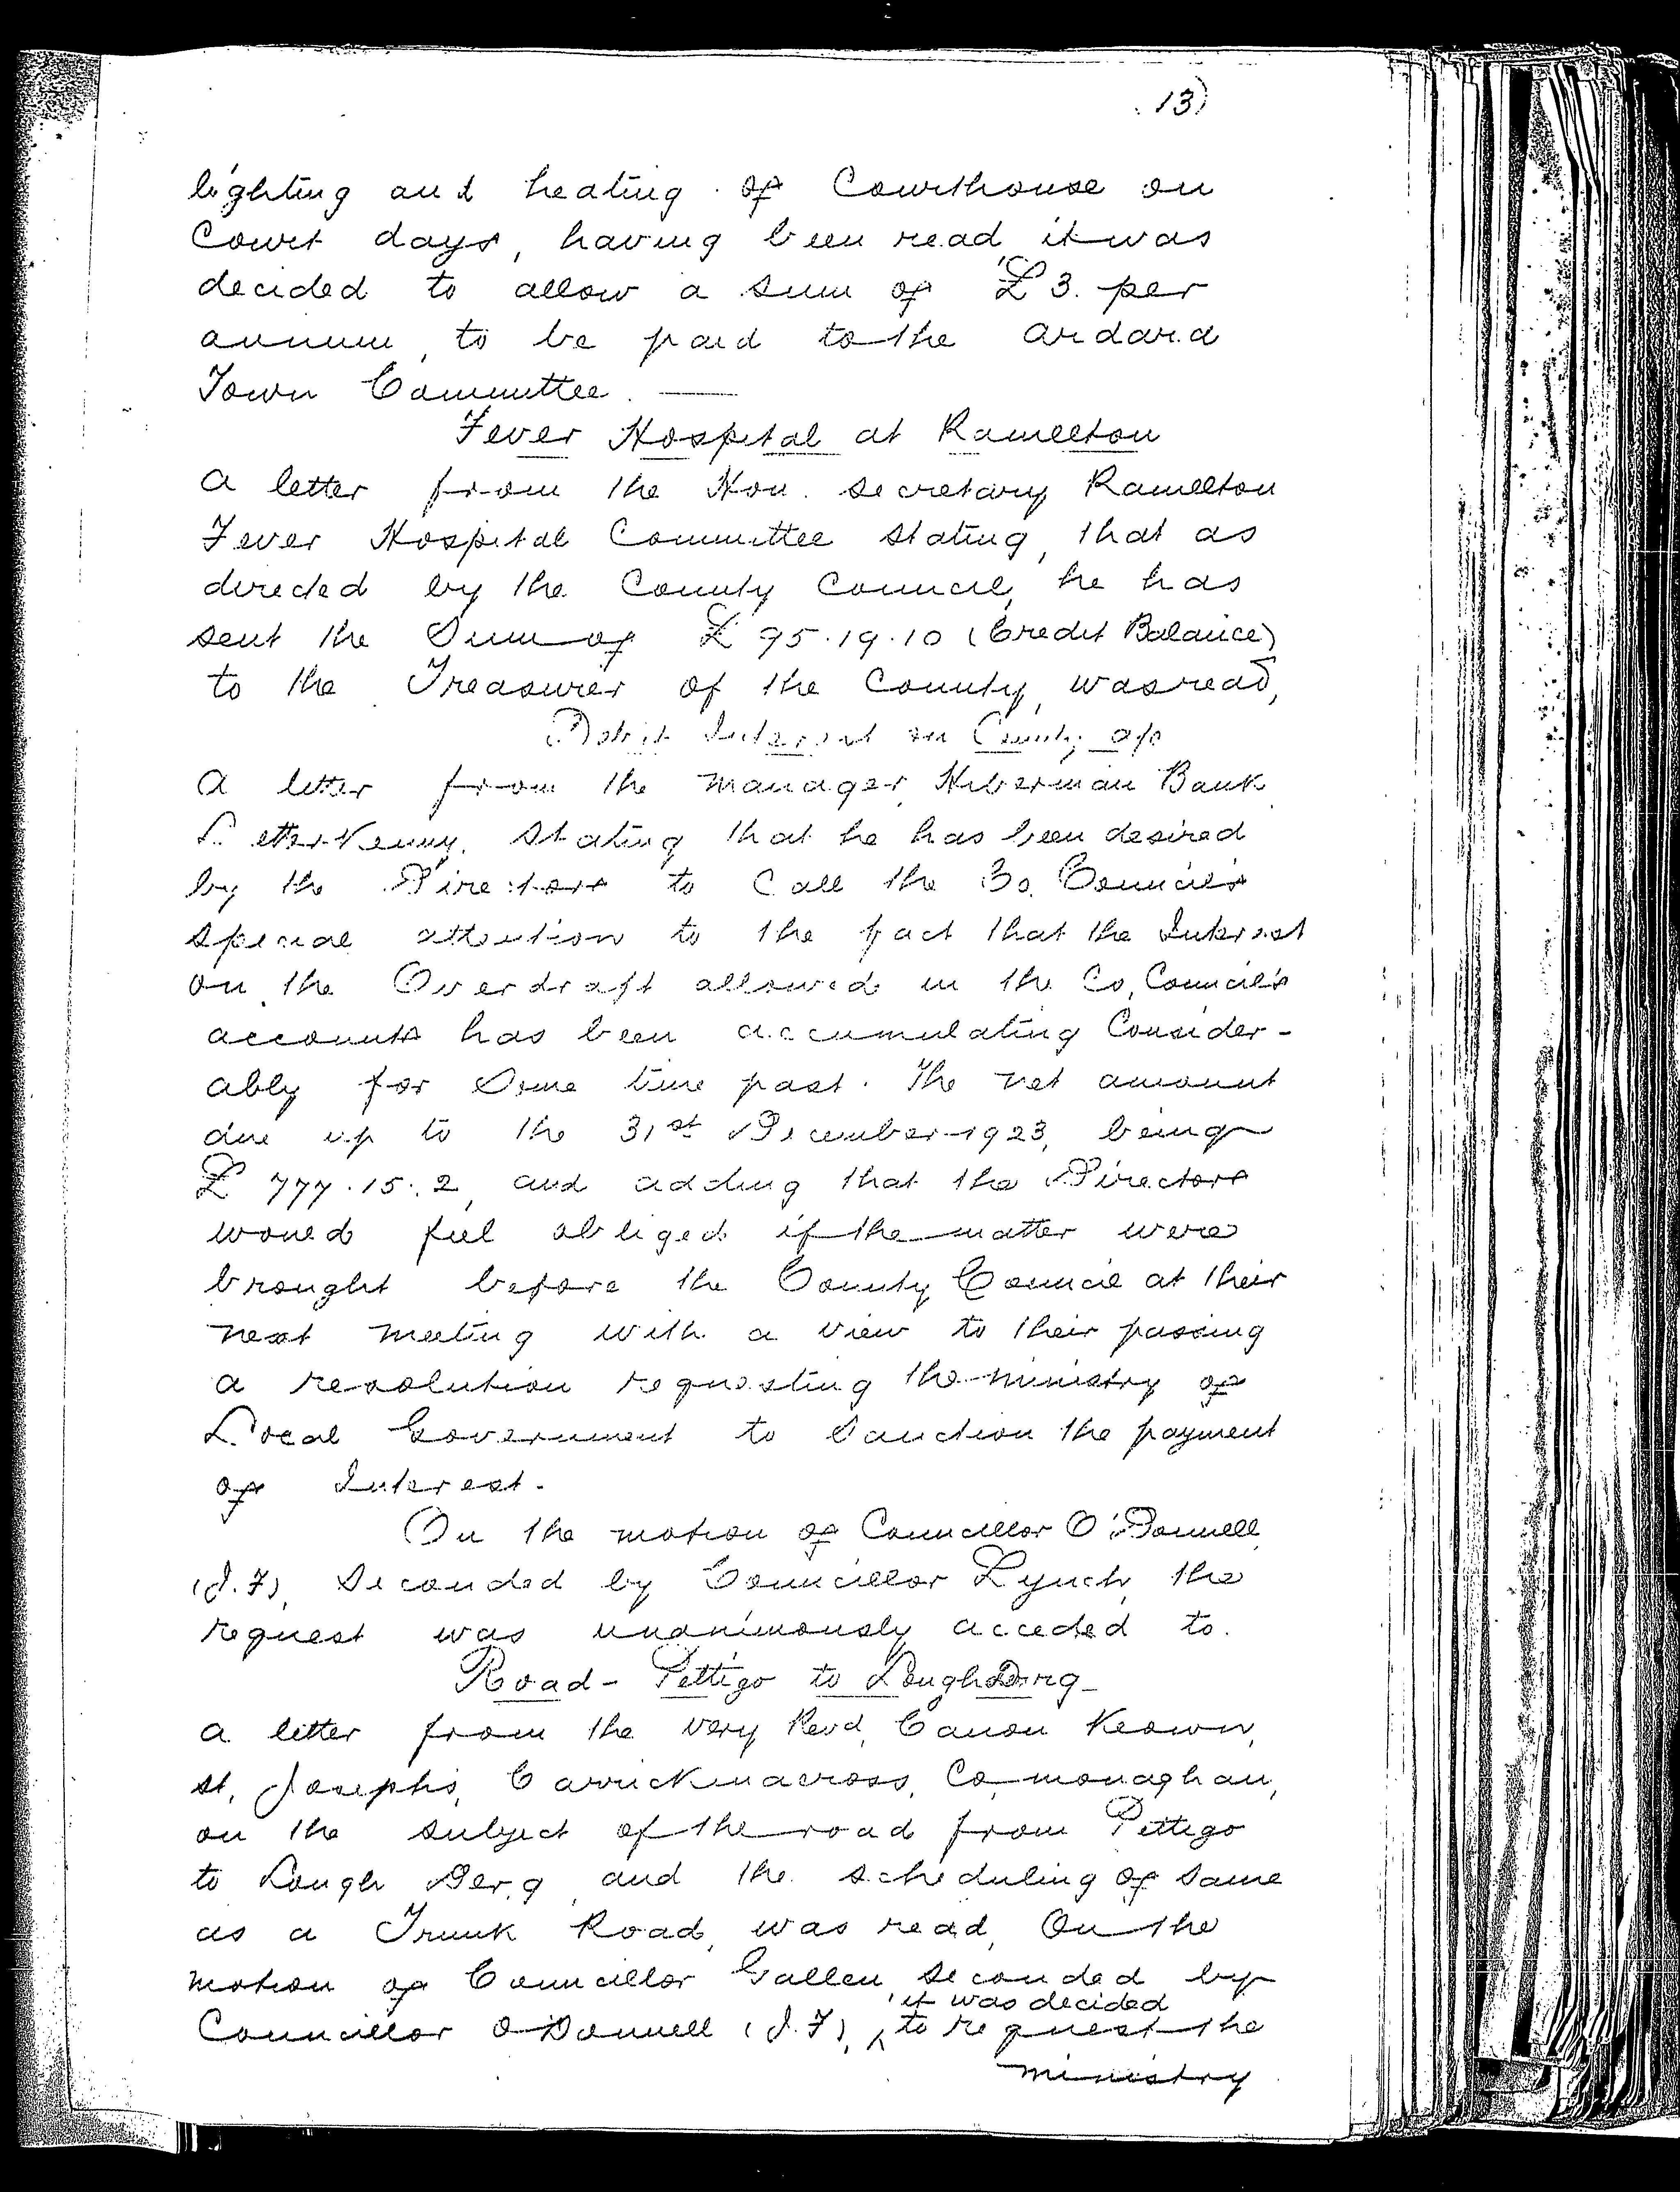 13)
lighting and heating of Courthouse on
Court days, having been read it was
decided to allow a sum of £3. per
annum, to be paid to the Ardara
Town Committee.
Fever Hospital at Ramelton
A letter from the Hon. Secretary Ramelton
Fever Hospital Committee stating, that as
directed by the County Council, he has
sent the Sum of £95.19.10 (Credit Balance)
to the Treasurer of the County, was read,
Debit Interest on County a/c
A letter from the Manager, Hibernian Bank
Letterkenny, stating that he has been desired
by the Directors to call the Co. Council's
special attention to the fact that the Interest
on the Overdraft allowed in the Co, Council's
accounts has been accumulating Consider-
ably for some time past. The net amount
due up to the 31st December 1923, being
£777.15.2, and adding that the Directors
would feel obliged if the matter were
brought before the County Council at their
next meeting with a view to their passing
a resolution requesting the Ministry of
Local Government to sanction the payment
of Interest.
On the motion of Councillor O'Donnell
(J.F), seconded by Councillor Lynch, the
request was unanimously acceded to.
Road - Pettigo to Lough Derg
A letter from the Very Revd, Canon Keown,
St. Joseph's, Carrickmacross, Co, Monaghan,
on the subject of the road from Pettigo
to Lough Derg, and the scheduling of same
as a Trunk Road, was read, On the
motion of Councillor Gallen, seconded by
it was decided
Councillor O'Donnell (J.F), to request the
Ministry